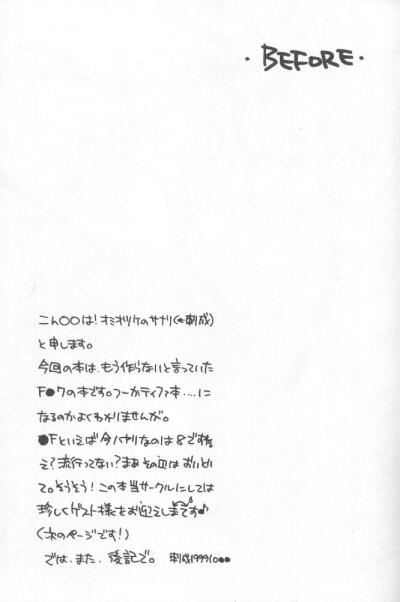 ・BEFORE・
こん○○は!オミオリケのサナリ(●刺成)
と申します。
今回の本は、もう作らないと言っていた
F●7の本です。つーかティファ本‥‥に
なるのかよくわかりませんが。
●Fといえば今ハヤリなのは8ですね
え?流行ってない?まぁその辺はおいとい
て。そうそう!この本当サークルにしては
珍しくゲスト様をお迎えしてます♪
(次のページです!)
では、また、後記で。